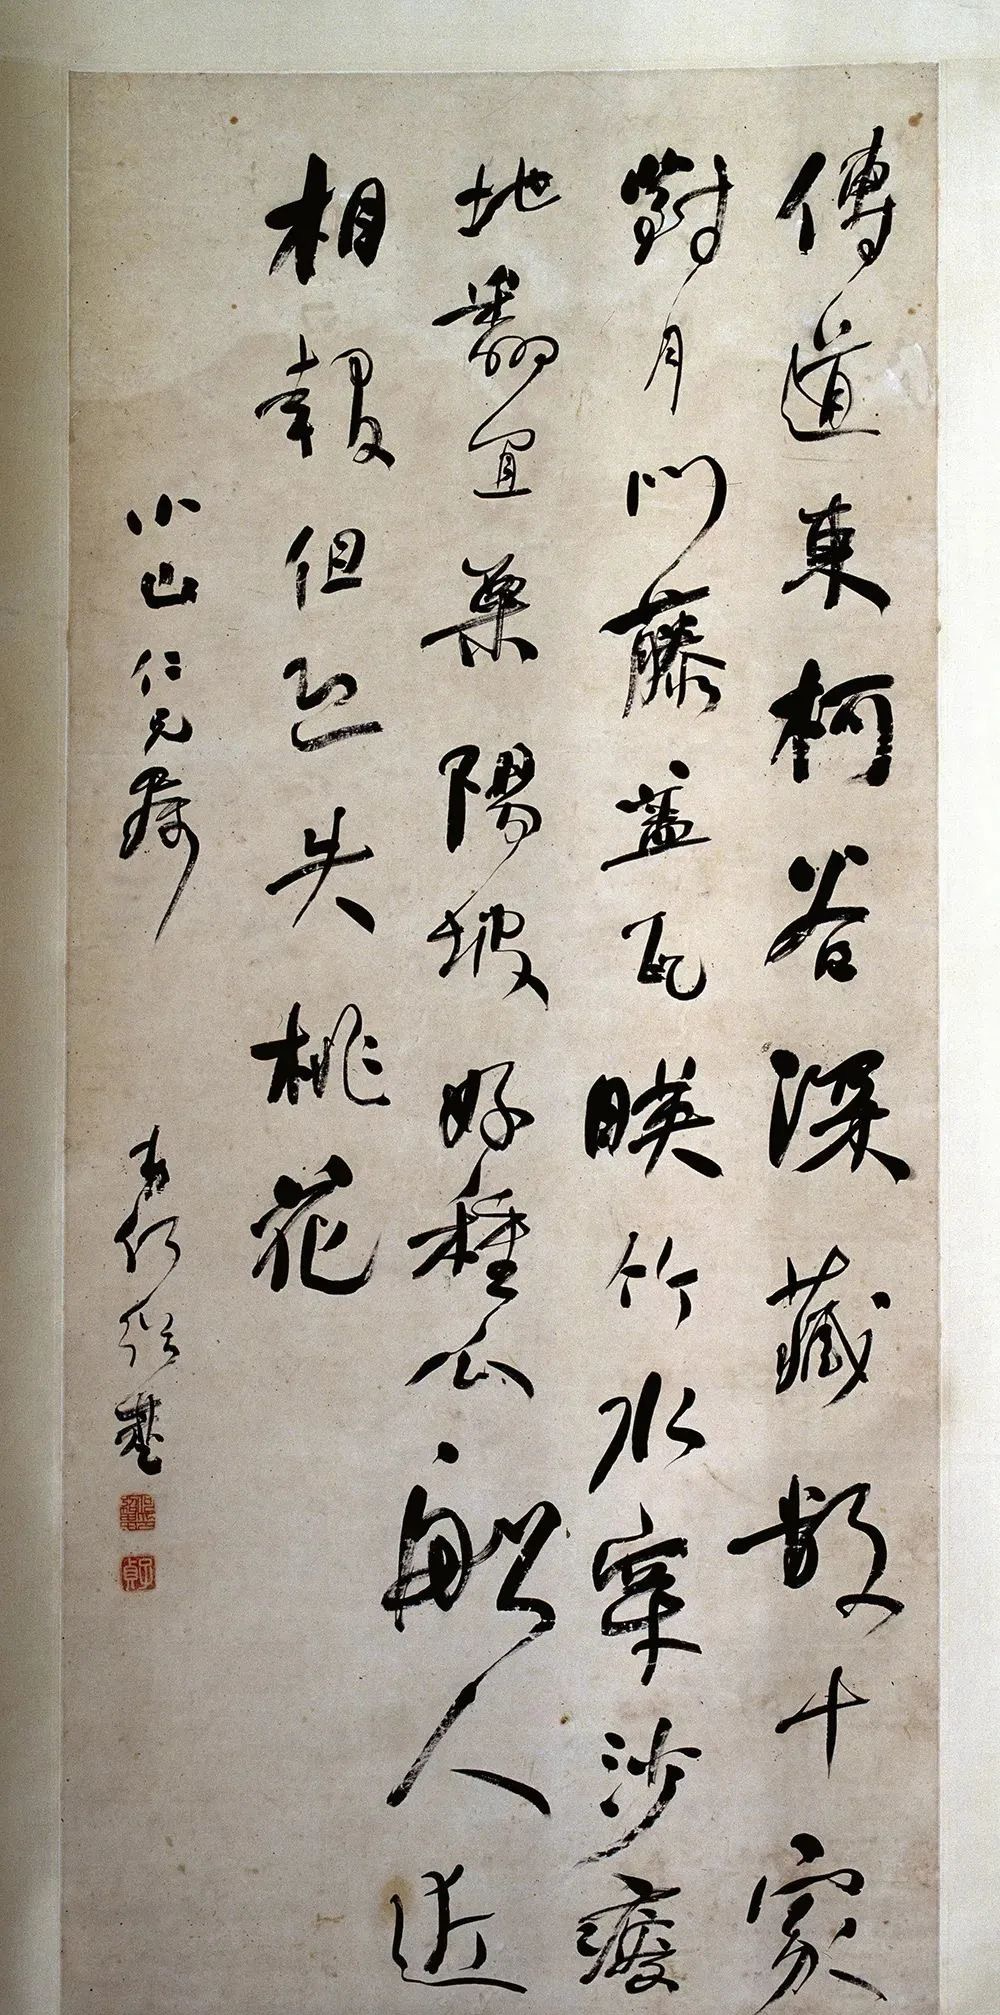 傳道東柯谷深藏數十家
對月門藤蓋瓦映竹水穿沙瘦
地翻宜粟陽坡好種瓜船人近
相報但恐失桃花
小山仁兄屬
紹基
子貞